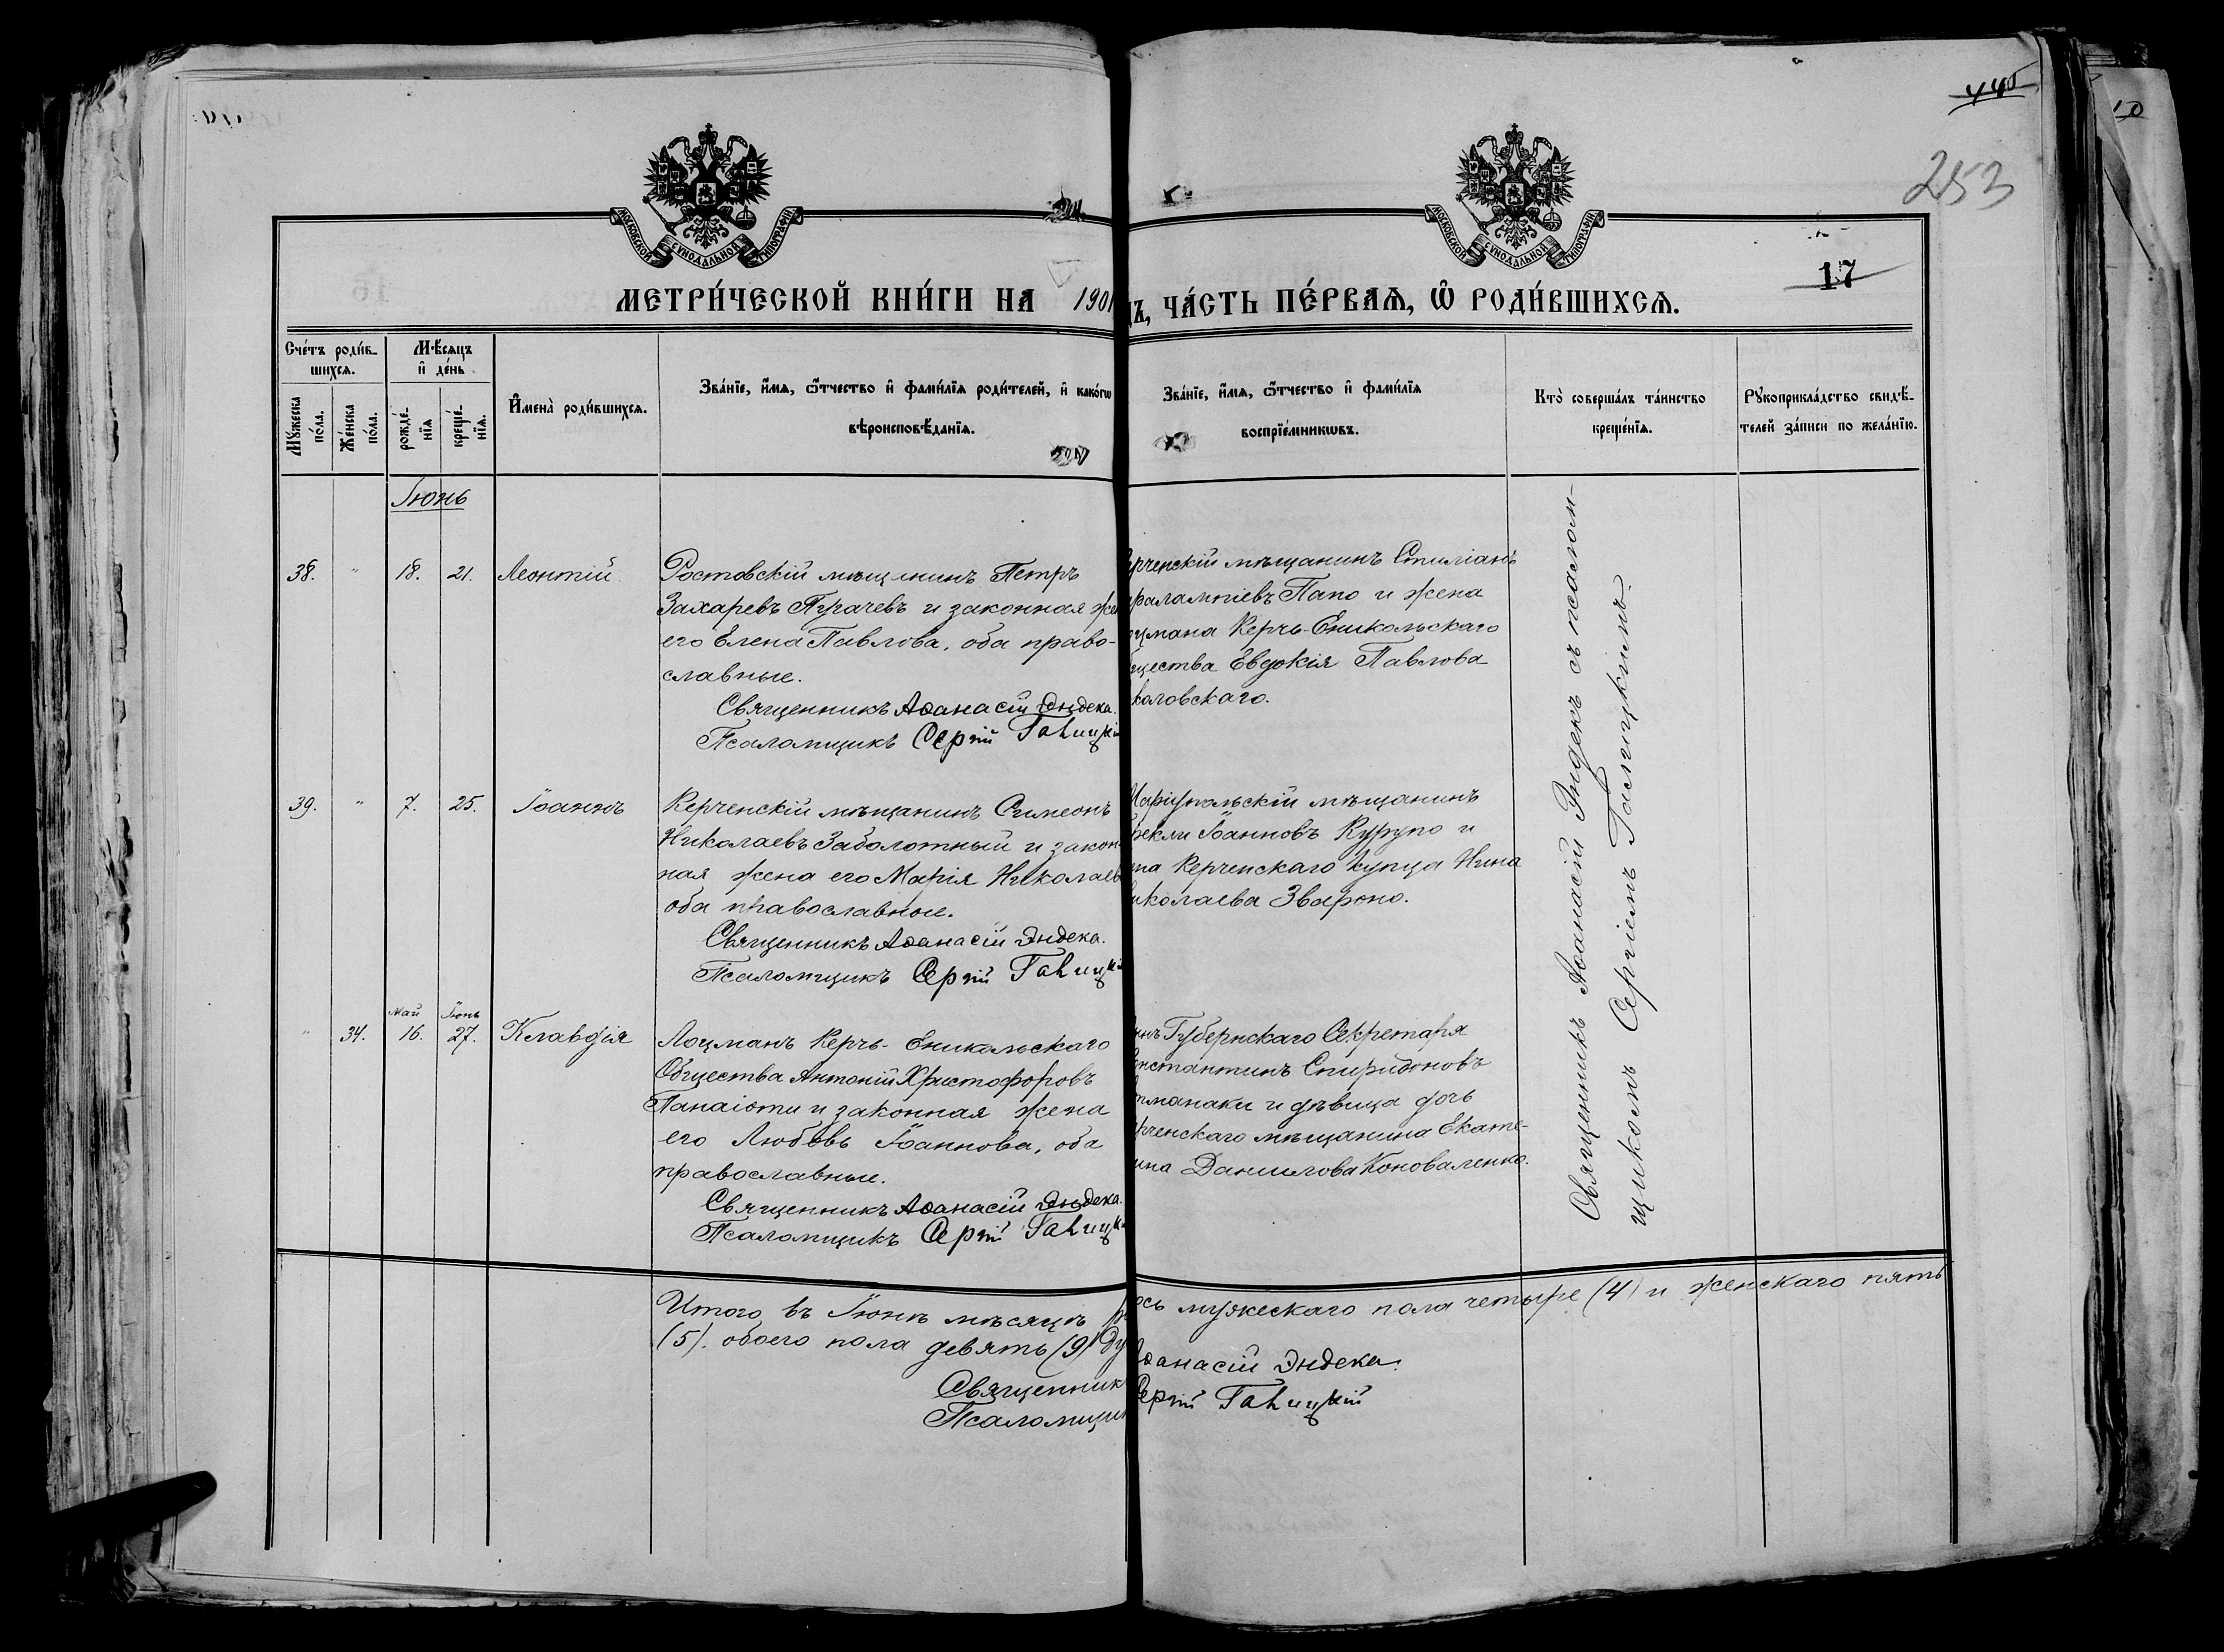 440
253
17
МОСКОВСКОЙ СУНОДАЛЬНОЙ ТИПОГРАФІИ
МОСКОВСКОЙ СУНОДАЛЬНОЙ ТИПОГРАФІИ
МЕТРИ́ЧЕСКОЙ КНИ́ГИ НА 1901
ДЪ, ЧА́СТЬ ПЕ́РВАѦ, Ѡ҆ РОДИ́ВШИХСѦ.
Сче́тъ роди́в-
шихсѧ.
Мꙋ́жеска
по́ла.
Же́нска
по́ла.
Мѣ́сѧцъ
и҆ де́нь
рожде́-
нїѧ
креще́-
нїѧ.
И҆мена̀ роди́вшихсѧ.
Зва́нїе, и҆́мѧ, ѻ҆́тчество и҆ фами́лїѧ роди́телей, и҆ како́гѡ
вѣроисповѣ́данїѧ.
Зва́нїе, и҆́мѧ, ѻ҆́тчество и҆ фами́лїѧ
воспрїе́мникѡвъ.
Кто̀ соверша́лъ та́инство
креще́нїѧ.
Рꙋкоприкла́дство свидѣ́-
телей за́писи по жела́нїю.
Іюнь
38. " 18. 21. Леонтій.
Ростовскій мѣщанинъ Петръ
Захаревъ Пугачевъ и законная жен
его Елена Павлова, оба право-
славные.
Священникъ Аѳанасій Эндека.
Псаломщикъ Сергій Галицкій
рченскій мѣщанинъ Стиліанъ
аралампіевъ Папо и жена
оцмана Керчь-Еникольскаго
щества Евдокія Павлова
каловскаго.
39. " 7. 25. Іоаннъ
Керченскій мѣщанинъ Симеонъ
Николаевъ Заболотный и закон-
ная жена его Марія Николаев
оба православные.
Священникъ Аѳанасій Эндека.
Псаломщикъ Сергій Галицкі
Маріупольскій мѣщанинъ
Іоанновъ Курупо и
на Керченскаго купца Нина
иколаева Зварoно.
Май Іюнь
" 34. 16. 27. Клавдія
Лоцманъ Керчь-Еникольскаго
Общества Антоній Христофоровъ
Панаіоти и законная жена
его Любовь Іоаннова, оба
православные.
Священникъ Аѳанасій Эндека.
Псаломщикъ Сергій Галицк
ынъ Губернскаго Секретаря
онстантинъ Спиридоновъ
манаки и дѣвица дочь
рченскаго мѣщанина Екате-
ина Данилова Коноваленко.
Священникъ Аѳанасій Эндекъ съ псалом-
щикомъ Сергіемъ Галицкимъ.
Итого въ Іюнѣ мѣсяцѣ р
ось мужескаго пола четыре (4) и женскаго пять
(5). обоего пола девять (9) ду
Священник
Аѳанасій Эндека.
Псаломщик
Сергій Галицкій